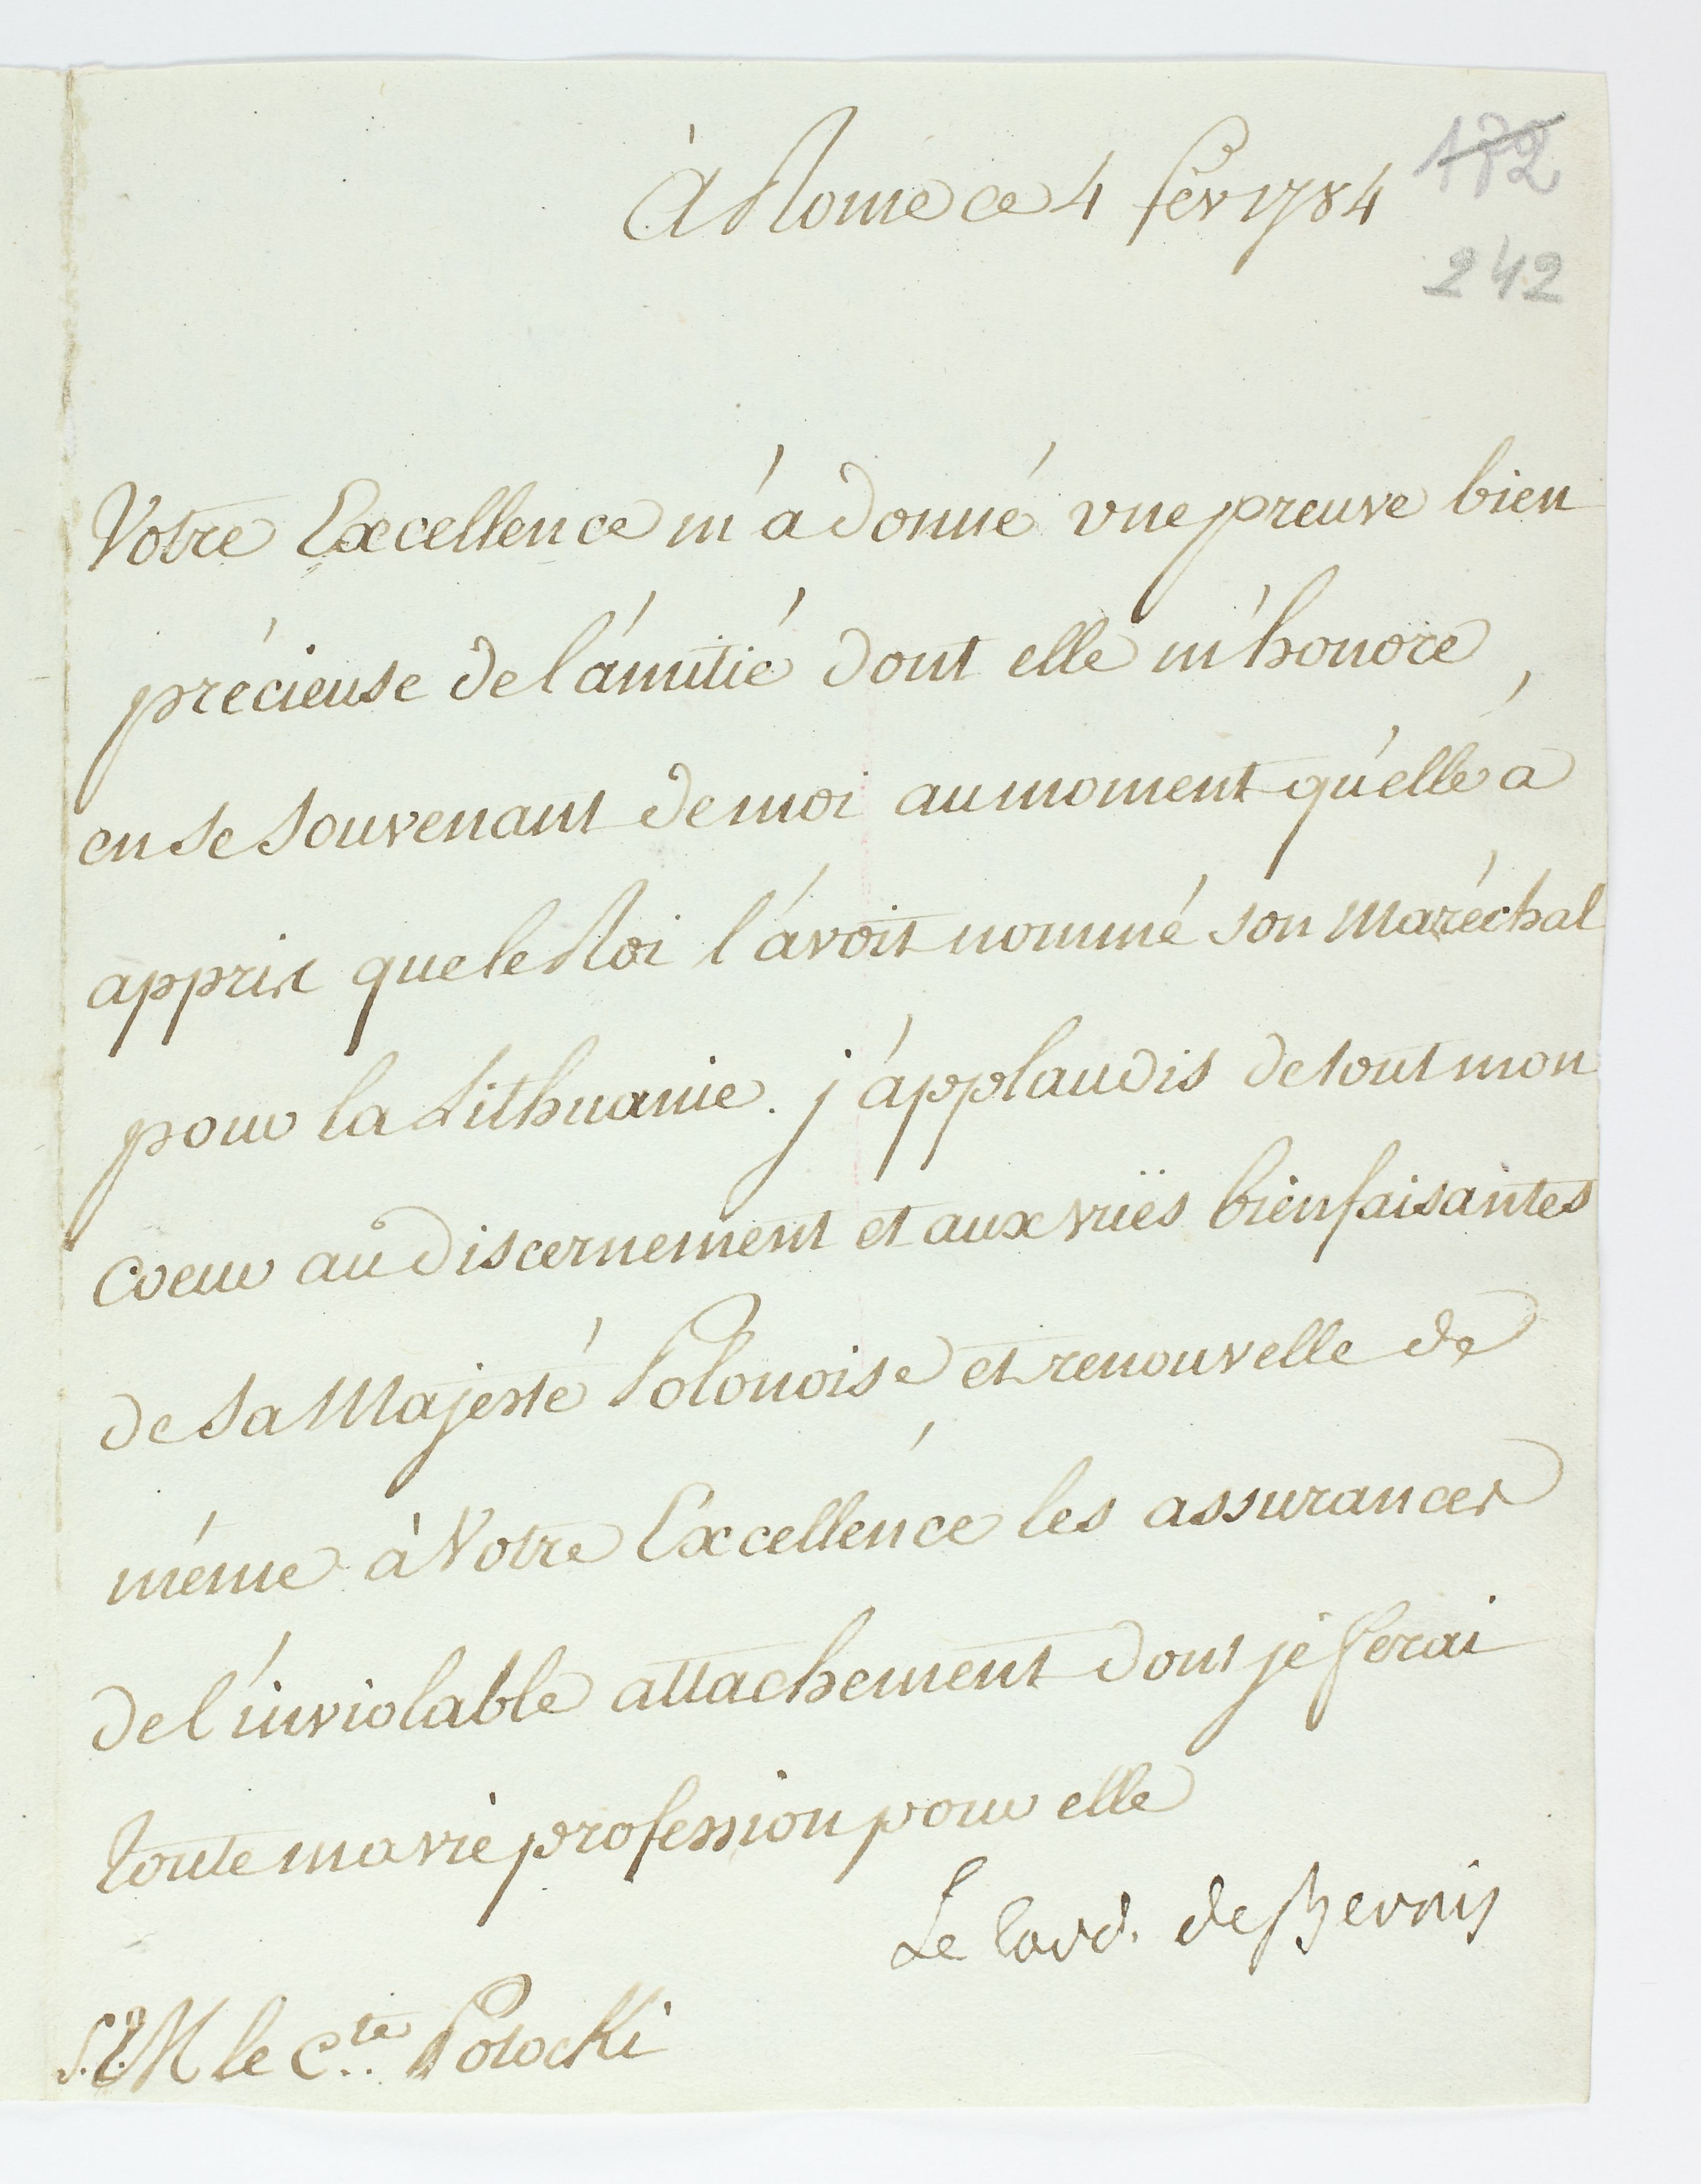 À Rome ce 4 fév 1784
172
242
Votre Excellence m'a donné une preuve bien
précieuse de l'amitié dont elle m'honore,
en se souvenant de moi au moment qu'elle a
appris que le Roi l'avoit nommé son Maréchal
pour la Lithuanie. j'applaudis de tout mon
coeur au discernement et aux vuës bienfaisantes
de Sa Majesté Polonoise et renouvelle de
même à Votre Excellence les assurances
de l'inviolable attachement dont je ferai
toute ma vie profession pour elle
Le Card. de Bernis
S. E. M le Cte. Potocki